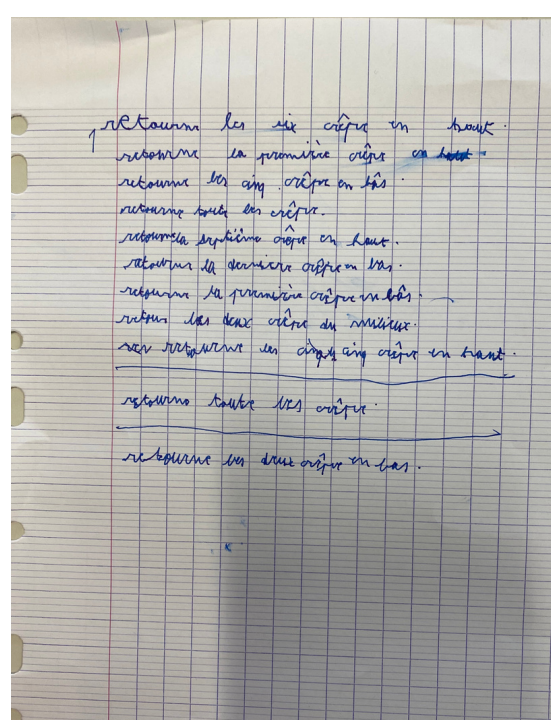 retourne les six crêpe en haut.
retourne la première crêpe en haut
retourne les cinq crêpe en bâs.
retourne toute les crêpe.
retourne la septième crêpe en haut.
retourne la dernière crêpe en bas.
retourne la première crêpe en bâs.
retour les deux crêpe du milieux.
retourne les cinq crêpe en haut.
retourne toute les crêpe.
retourne les deux crêpe en bas.